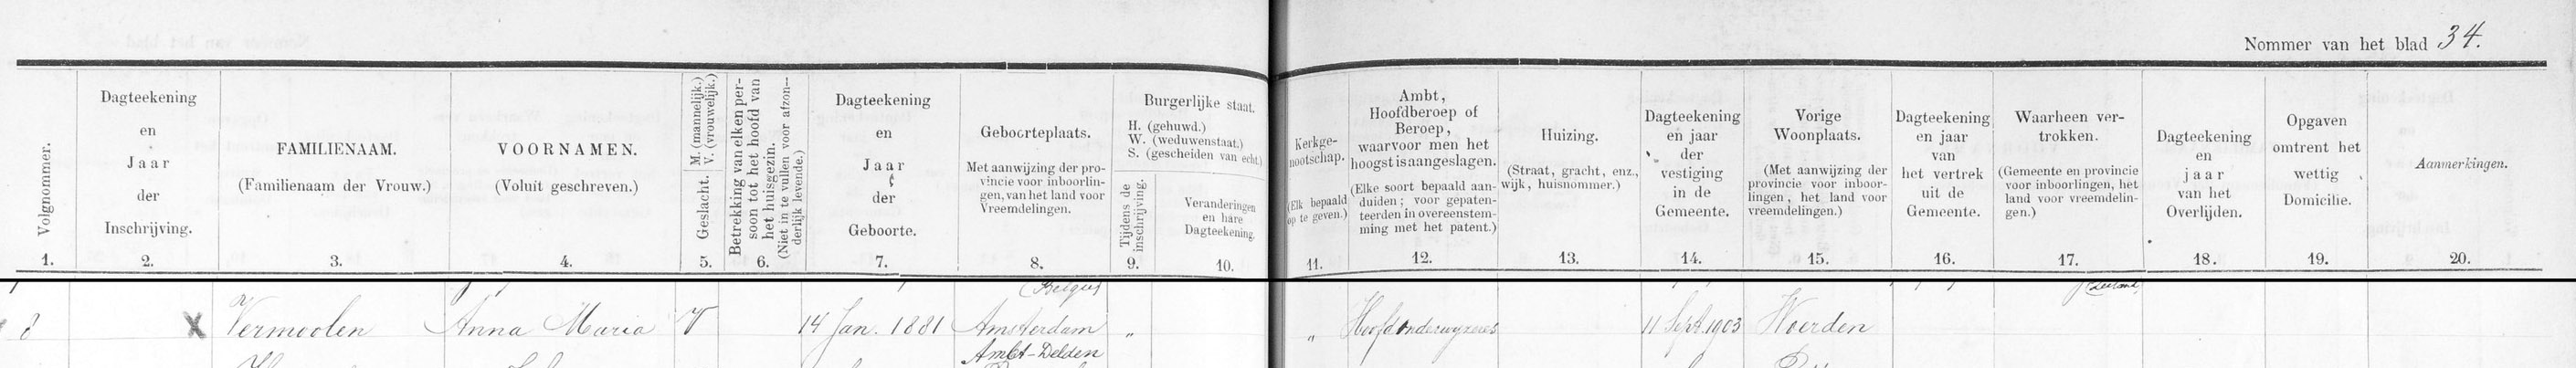 Nommer van het blad 34.
Volgnommer.
1.
Dagteekening
en
Jaar
der
Inschrijving.
2.
FAMILIENAAM.
(Familienaam der Vrouw.)
3.
VOORNAMEN.
(Voluit geschreven.)
4.
Geslacht. M. (mannelijk.)
V. (vrouwelijk.)
5.
Betrekking van elken per-
soon tot het hoofd van
het huisgezin.
(Niet in te vullen voor afzon-
derlijk levende.)
6.
Dagteekening
en
Jaar
der
Geboorte.
7.
Geboorteplaats.
Met aanwijzing der pro-
vincie voor inboorlin-
gen, van het land voor
Vreemdelingen.
8.
Burgerlijke staat.
H. (gehuwd.)
W. (weduwenstaat.)
S. (gescheiden van echt.)
Tijdens de
inschrijving.
9.
Veranderingen
en hare
Dagteekening.
10.
Kerkge-
nootschap.
(Elk bepaald
op te geven.)
11.
Ambt,
Hoofdberoep of
Beroep,
waarvoor men het
hoogst is aangeslagen.
(Elke soort bepaald aan-
duiden; voor gepaten-
teerden in overeenstem-
ming met het patent.)
12.
Huizing.
(Straat, gracht, enz.,
wijk, huisnommer.)
13.
Dagteekening
en jaar
der
vestiging
in de
Gemeente.
14.
Vorige
Woonplaats.
(Met aanwijzing der
provincie voor inboor-
lingen, het land voor
vreemdelingen.)
15.
Dagteekening
en jaar
van
het vertrek
uit de
Gemeente.
16.
Waarheen ver-
trokken.
(Gemeente en provincie
voor inboorlingen, het
land voor vreemdelin-
gen.)
17.
Dagteekening
en
jaar
van het
Overlijden.
18.
Opgaven
omtrent het
wettig
Domicilie.
19.
Aanmerkingen.
20.
8 X Vermoolen Anna Maria V 14 Jan. 1881 Amsterdam " " Hoofdonderwyzeres 11 Sept. 1903 Woerden
Ambt-Delden